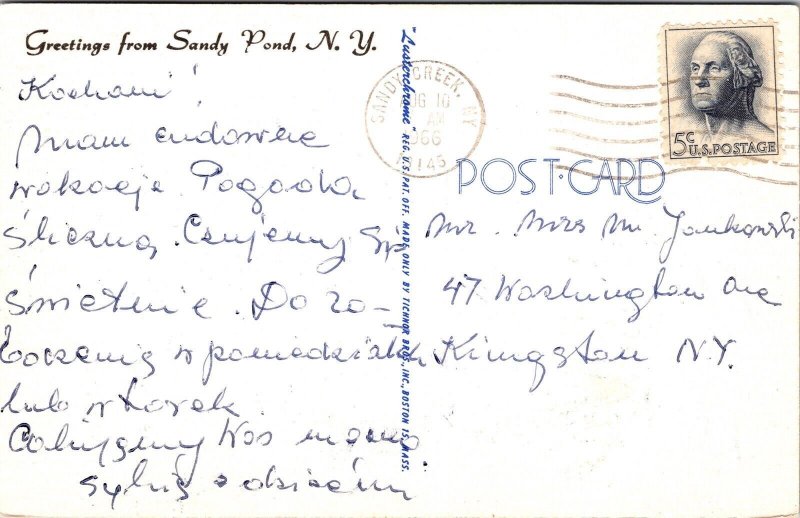 Greetings from Sandy Pond, N. Y.
Kochani!
Mam cudowne
wakacje Pogoda
śliczna. Czujemy się
świetnie. Do zo-
baczenia w poniedziałek
lub wtorek.
Całujemy Was mocno.
z dziećmi
"Lusterchrome" REG. U.S. PAT. OFF. MADE ONLY BY TICHNOR BROS., INC., BOSTON 15, MASS.
SANDY CREEK, NY
AUG 10
AM
1966
13145
5c U.S. POSTAGE
POST-CARD
Mr. Mrs M. Jankowski
47 Washington Ave
Kingston N.Y.